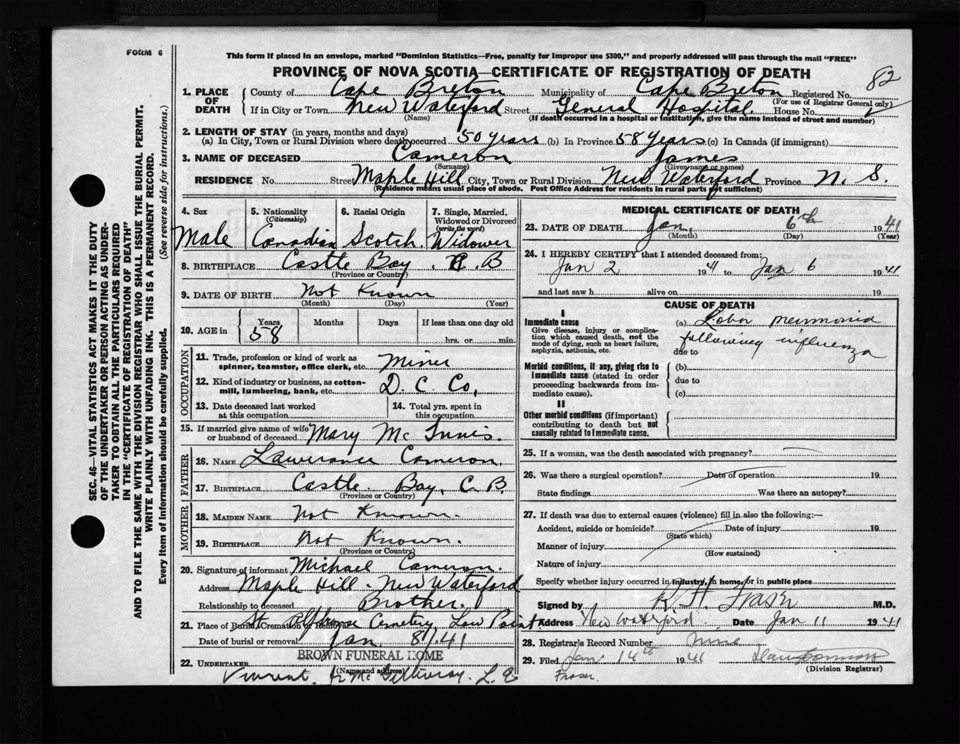 FORM 6
This form if placed in an envelope, marked "Dominion Statistics—Free, penalty for improper use $300," and properly addressed will pass through the mail "FREE"
PROVINCE OF NOVA SCOTIA—CERTIFICATE OF REGISTRATION OF DEATH
82
1. PLACE OF DEATH
County of Cape Breton Municipality of Cape Breton Registered No.
(For use of Registrar General only)
If in City or Town New Waterford Street General Hospital. House No.
(Name) (If death occurred in a hospital or institution, give the name instead of street and number)
2. LENGTH OF STAY (in years, months and days)
(a) In City, Town or Rural Division where death occurred 50 years (b) In Province 58 years (c) In Canada (if immigrant)
3. NAME OF DECEASED Cameron James
(Surname) (Given name or names)
RESIDENCE No. Street Maple Hill City, Town or Rural Division New Waterford Province N. S.
(Residence means usual place of abode. Post Office Address for residents in rural parts not sufficient)
4. Sex Male
5. Nationality (Citizenship) Canadian
6. Racial Origin Scotch
7. Single, Married, Widowed or Divorced (write the word) Widower
8. BIRTHPLACE Castle Bay . C. B
(Province or Country)
9. DATE OF BIRTH Not Known
(Month) (Day) (Year)
10. AGE in Years 58 Months Days If less than one day old hrs. or min.
OCCUPATION
11. Trade, profession or kind of work as spinner, teamster, office clerk, etc. Miner
12. Kind of industry or business, as cotton-mill, lumbering, bank, etc. D. C. Co,
13. Date deceased last worked at this occupation
14. Total yrs. spent in this occupation
15. If married give name of wife or husband of deceased Mary Mc Innis.
FATHER
16. NAME Lawerance Cameron.
17. BIRTHPLACE Castle Bay, C. B.
(Province or Country)
MOTHER
18. MAIDEN NAME Not Known.
19. BIRTHPLACE Not Known.
(Province or Country)
20. Signature of informant Michael Cameron.
Address Maple Hill - New Waterford
Relationship to deceased Brother.
21. Place of Burial, Cremation or Removal St. Cemetery Low Point
Date of burial or removal Jan. 8/41
BROWN FUNERAL HOME
22. UNDERTAKER
(Name and address)
Vincent Mc Gillivray. L. E
MEDICAL CERTIFICATE OF DEATH
23. DATE OF DEATH Jan. 6th 1941
(Month) (Day) (Year)
24. I HEREBY CERTIFY that I attended deceased from:
Jan 2 1941 to Jan 6 1941
and last saw h alive on 19
CAUSE OF DEATH
I
Immediate cause
Give disease, injury or complication which caused death, not the mode of dying, such as heart failure, asphyxia, asthenia, etc.
(a) Lobar pneumonia
following influenza
due to
Morbid conditions, if any, giving rise to Immediate cause (stated in order proceeding backwards from immediate cause).
(b)
due to
(c)
II
Other morbid conditions (if important) contributing to death but not causally related to Immediate cause.
25. If a woman, was the death associated with pregnancy?
26. Was there a surgical operation? Date of operation 19
State findings Was there an autopsy?
27. If death was due to external causes (violence) fill in also the following:—
Accident, suicide or homicide? Date of injury 19
(State which)
Manner of injury
(How sustained)
Nature of injury
Specify whether injury occurred in Industry, in home, or in public place
Signed by R H Fraser M.D.
Address New Waterford. Date Jan 11 1941
28. Registrar's Record Number
29. Filed Jan 14th 1941
Fraser.
(Division Registrar)
SEC. 46—VITAL STATISTICS ACT MAKES IT THE DUTY
OF THE UNDERTAKER OR PERSON ACTING AS UNDER-
TAKER TO OBTAIN ALL THE PARTICULARS REQUIRED
IN THE "CERTIFICATE OF REGISTRATION OF DEATH"
AND TO FILE THE SAME WITH THE DIVISION REGISTRAR WHO SHALL ISSUE THE BURIAL PERMIT.
WRITE PLAINLY WITH UNFADING INK. THIS IS A PERMANENT RECORD.
Every item of information should be carefully supplied. (See reverse side for instructions.)